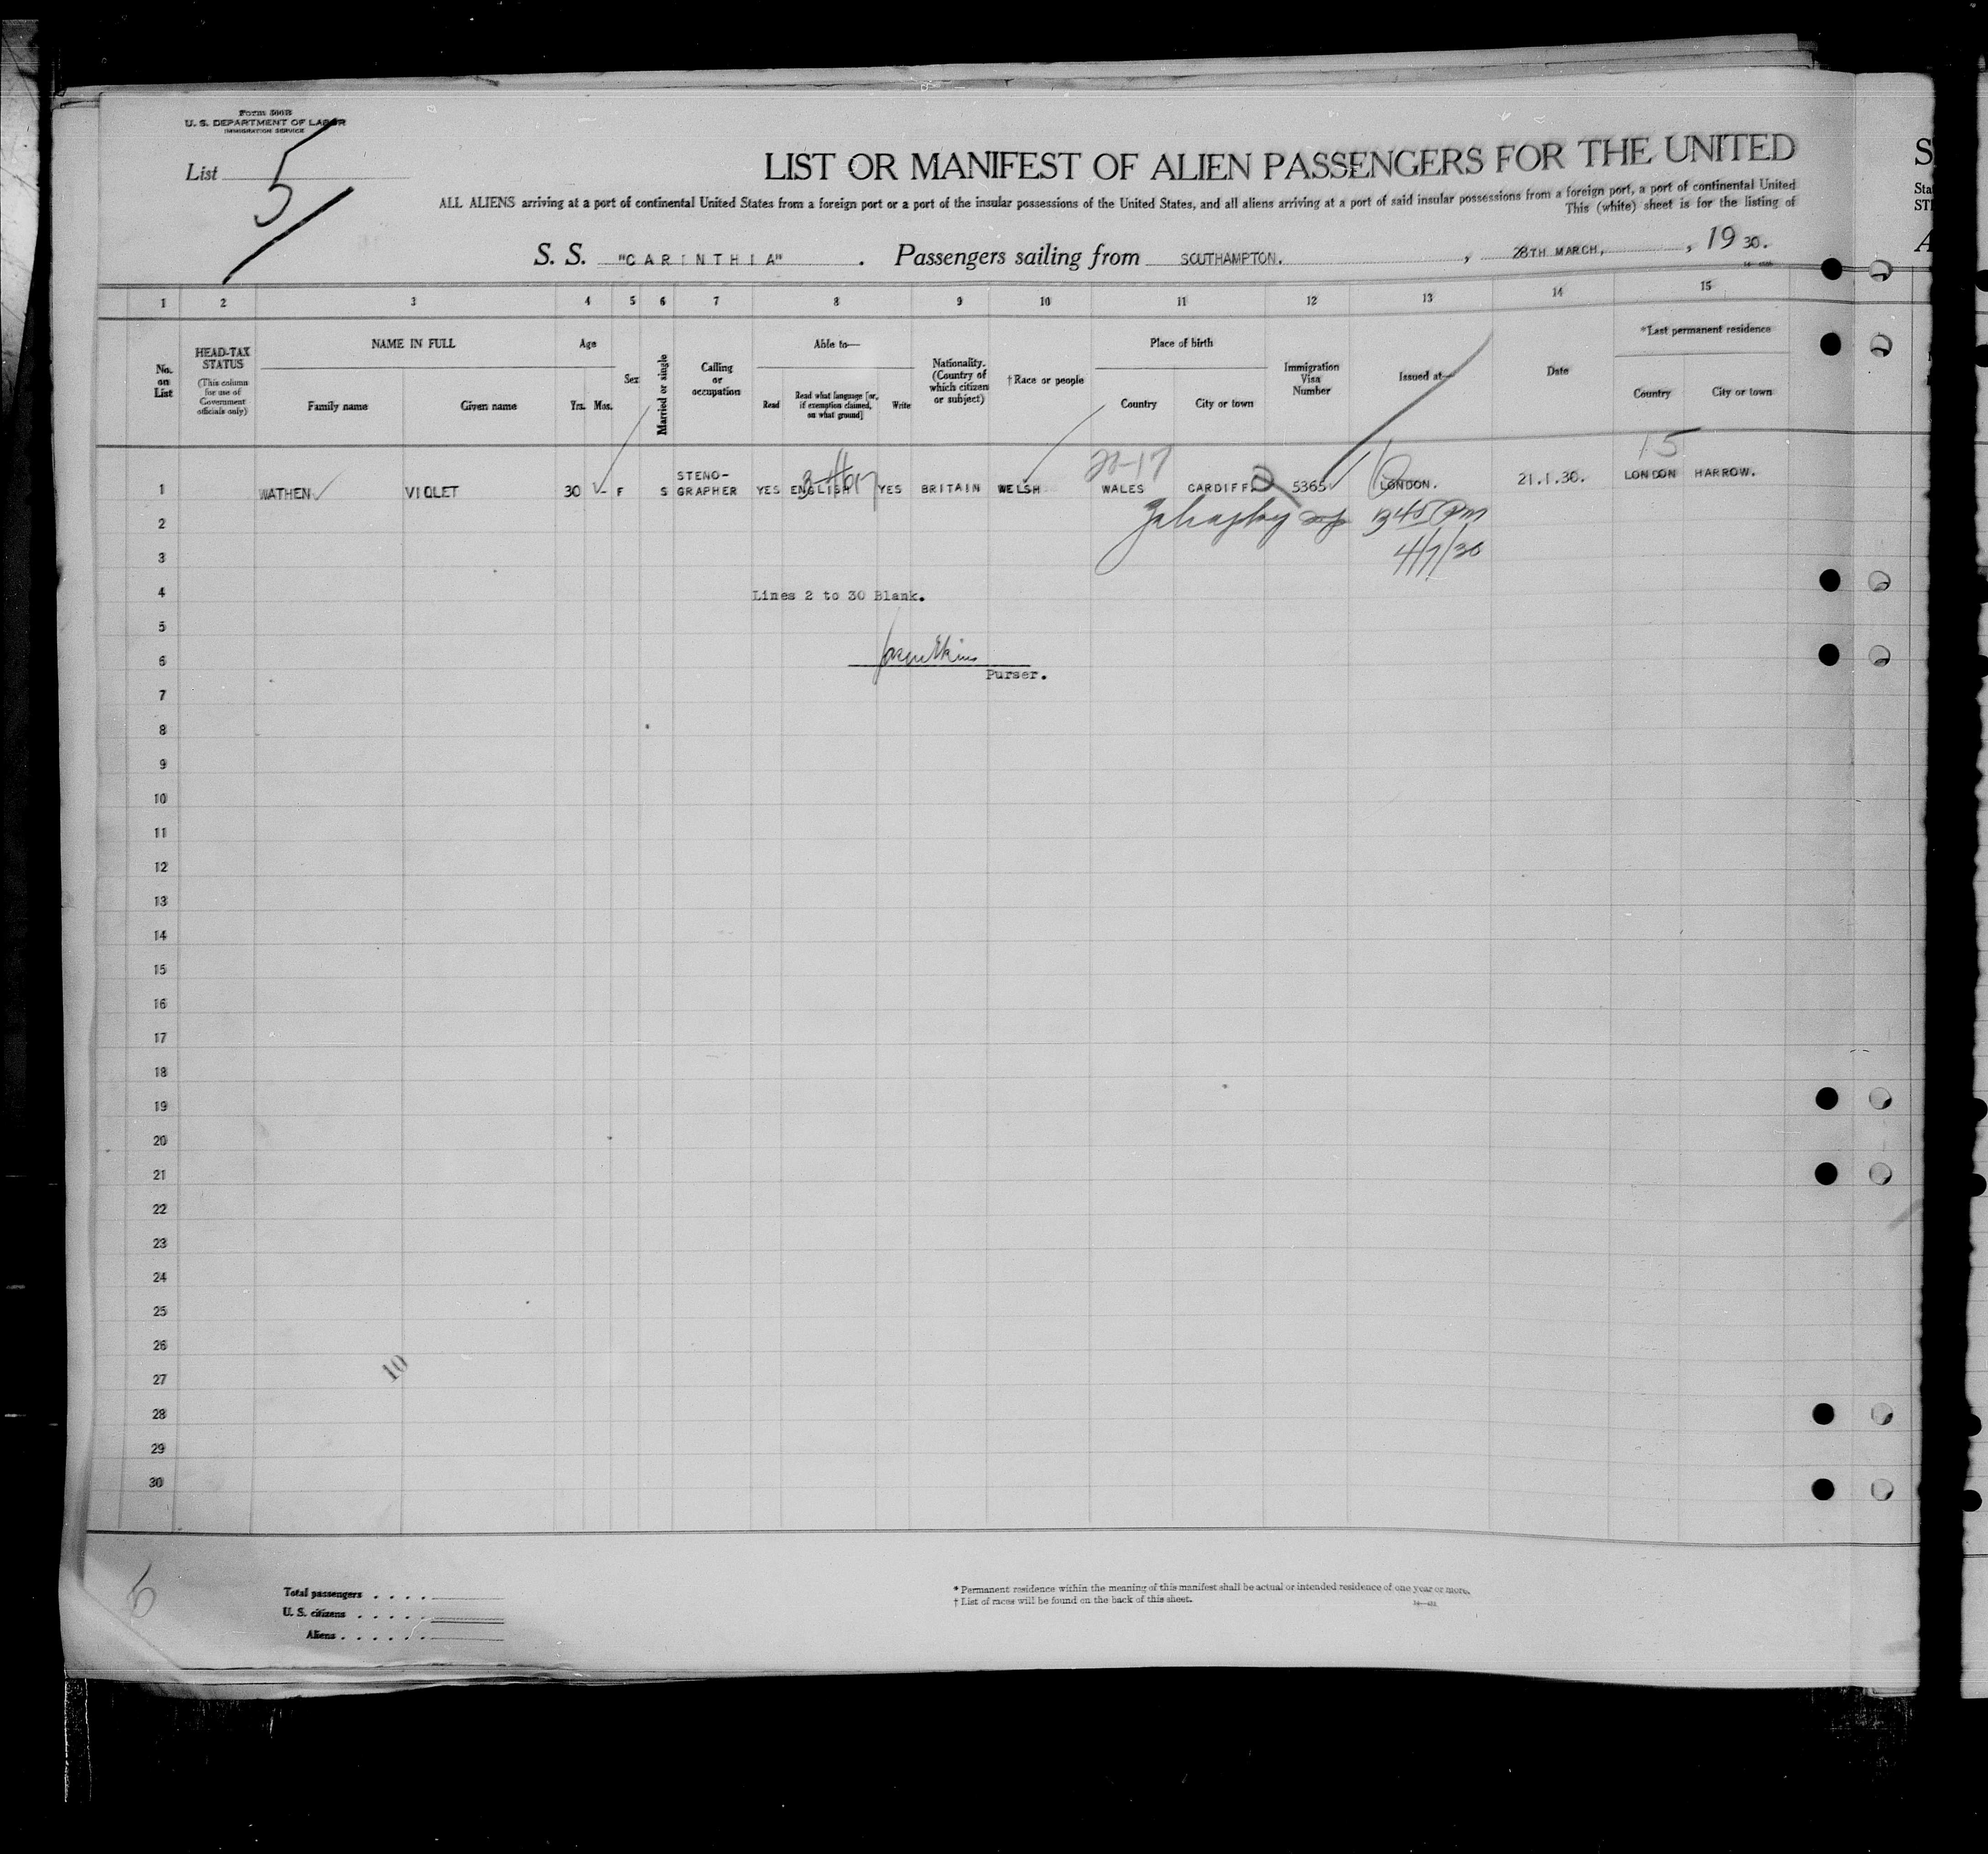 Form 500B
U. S. DEPARTMENT OF LABOR
IMMIGRATION SERVICE
List 5
LIST OR MANIFEST OF ALIEN PASSENGERS FOR THE UNITED
ALL ALIENS arriving at a port of continental United States from a foreign port or a port of the insular possessions of the United States, and all aliens arriving at a port of said insular possessions from a foreign port, a port of continental United
This (white) sheet is for the listing of
S. S. "CARINTHIA" . Passengers sailing from SOUTHAMPTON. , 28TH MARCH, , 19 30.
1 2 3 4 5 6 7 8 9 10 11 12 13 14 15
No. on List
HEAD-TAX STATUS
(This column for use of Government officials only)
NAME IN FULL
Family name Given name
Age
Yrs. Mos.
Sex
Married or single
Calling or occupation
Able to—
Read
Read what language [or, if exemption claimed, on what ground]
Write
Nationality. (Country of which citizen or subject)
† Race or people
Place of birth
Country City or town
Immigration Visa Number
Issued at—
Date
*Last permanent residence
Country City or town
15
1 WATHEN VIOLET 30 - F S STENO-GRAPHER YES ENGLISH YES BRITAIN WELSH WALES CARDIFF. 5365 LONDON. 21.1.30. LONDON HARROW.
2
3
4/7/30
4
Lines 2 to 30 Blank.
5
6
Purser.
7
8
9
10
11
12
13
14
15
16
17
18
19
20
21
22
23
24
25
26
27
10
28
29
30
Total passengers . . . .
U. S. citizens . . . . .
Aliens . . . . . .
* Permanent residence within the meaning of this manifest shall be actual or intended residence of one year or more.
† List of races will be found on the back of this sheet.